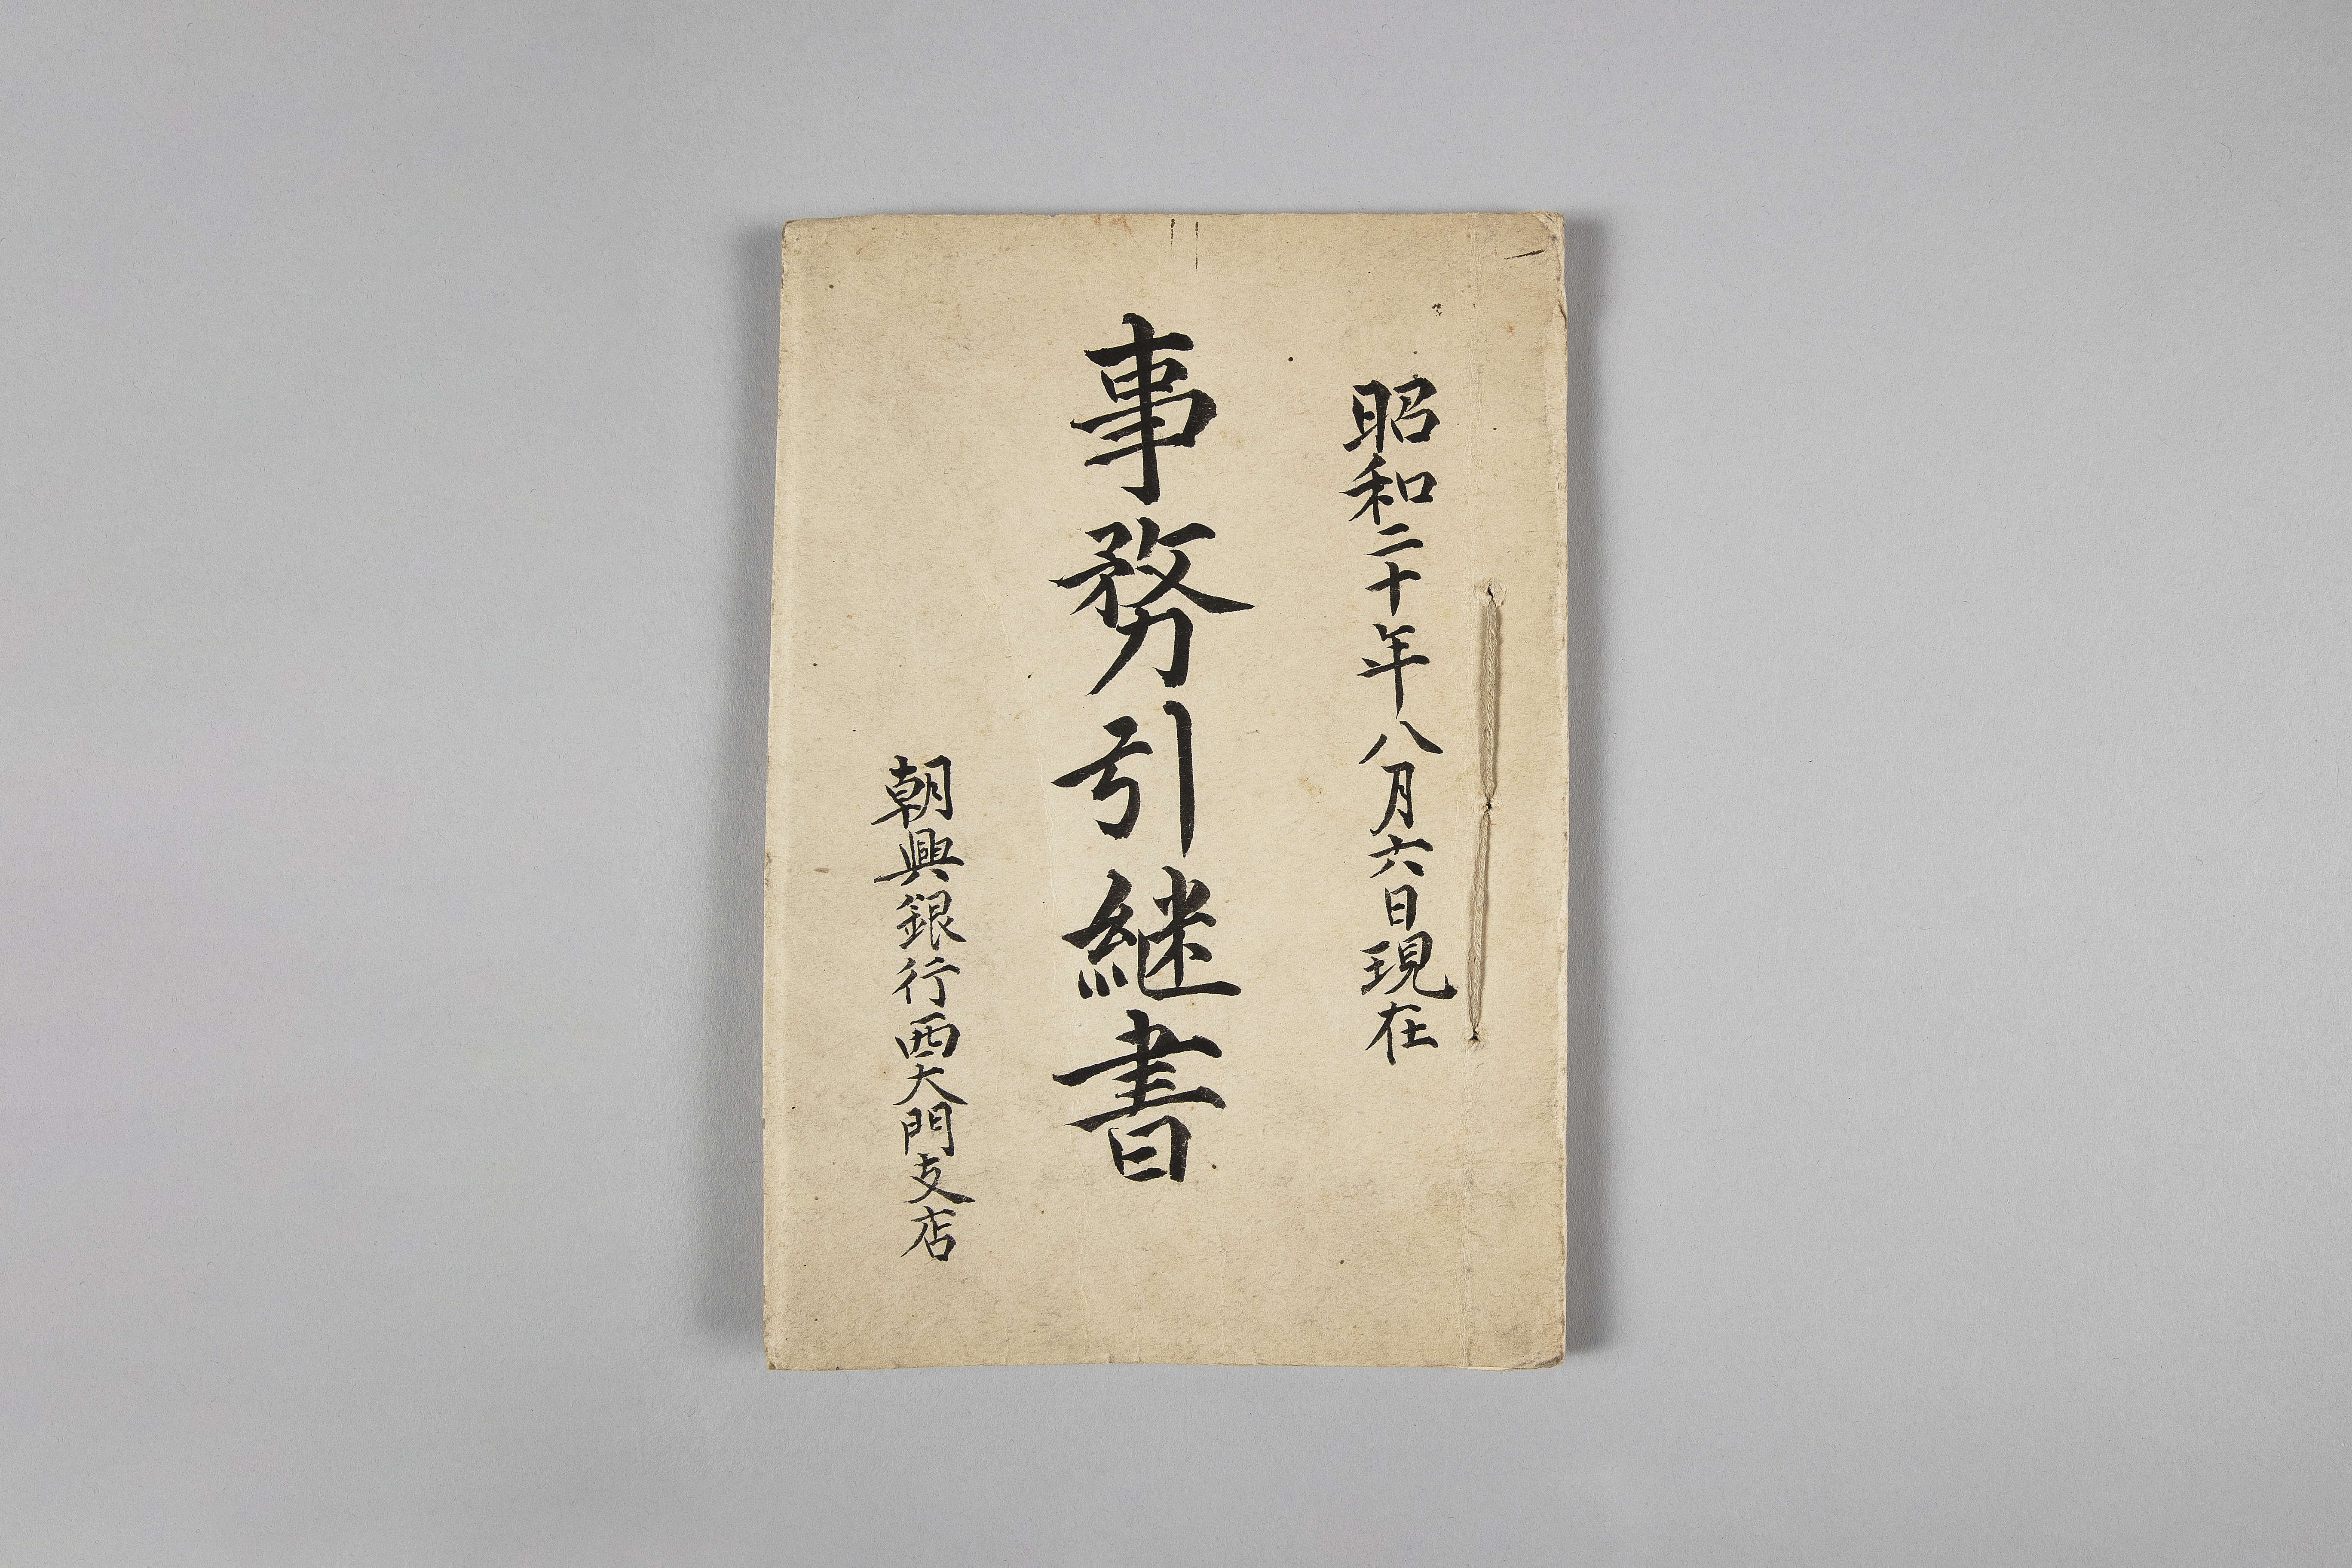 昭和二十年八月六日現在
事務引継書
朝興銀行西大門支店